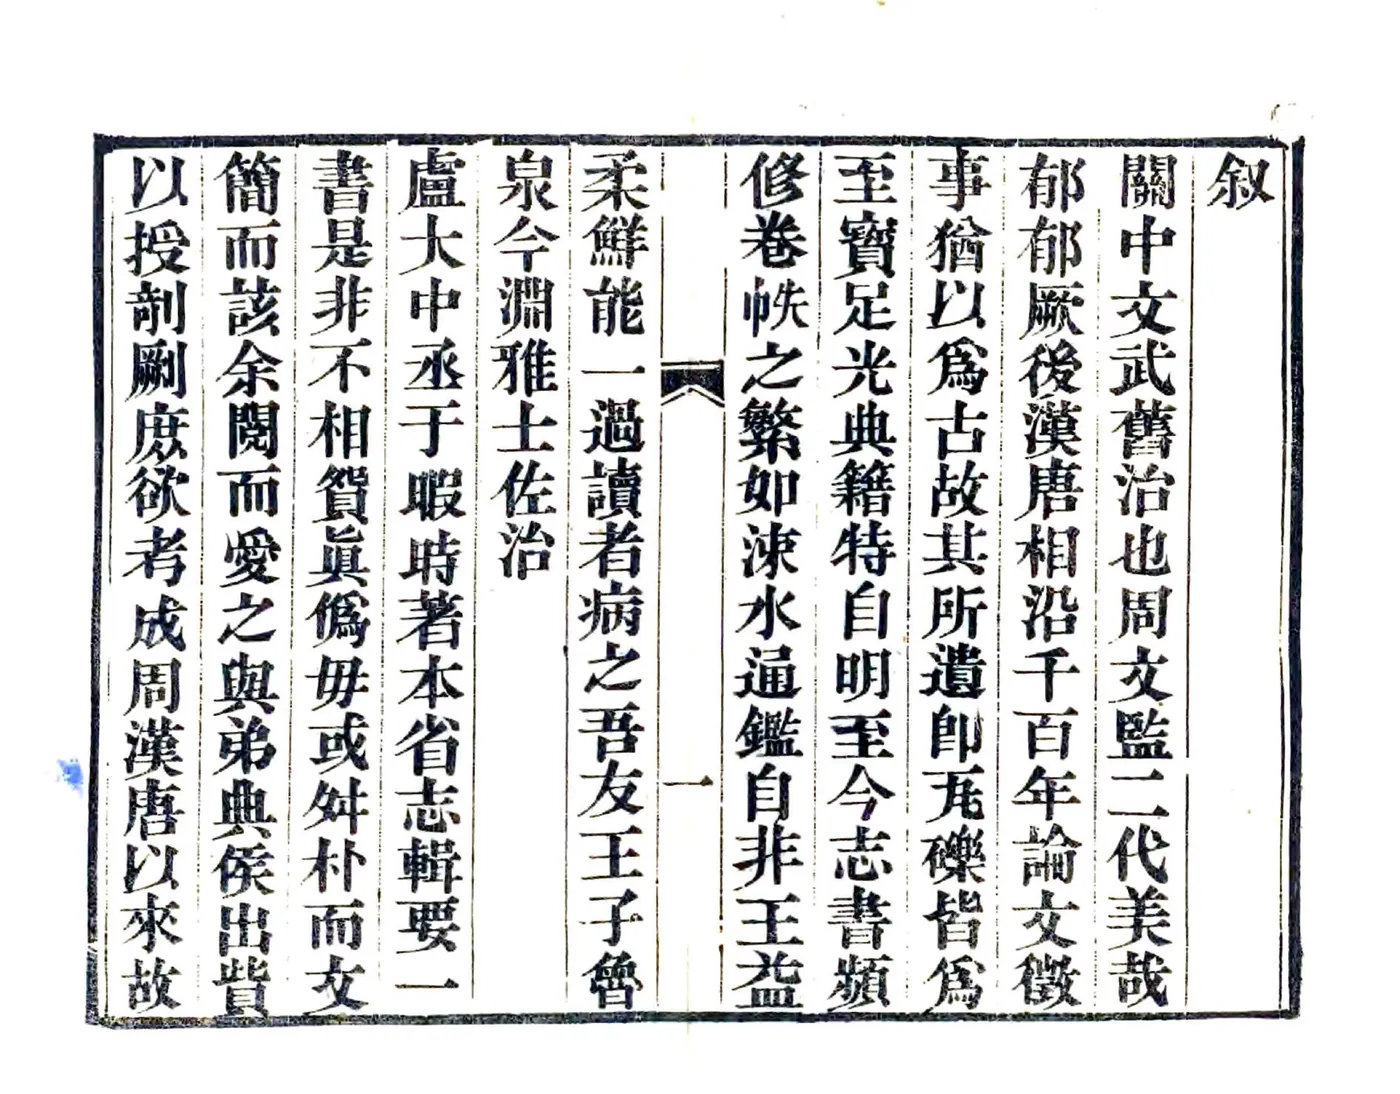 叙
關中文武舊治也周文監二代美哉
郁郁厥後漢唐相沿千百年論文徵
事猶以爲古故其所遺卽瓦礫皆爲
至寶足光典籍特自明至今志書頻
修卷帙之繁如涑水通鑑自非王益
一
柔鮮能一過讀者病之吾友王子曾
泉今淵雅士佐治
盧大中丞于暇時著本省志輯要一
書是非不相貿眞僞毋或舛朴而文
簡而該余閱而愛之與弟典侯出貲
以授剞劂庶欲考成周漢唐以來故